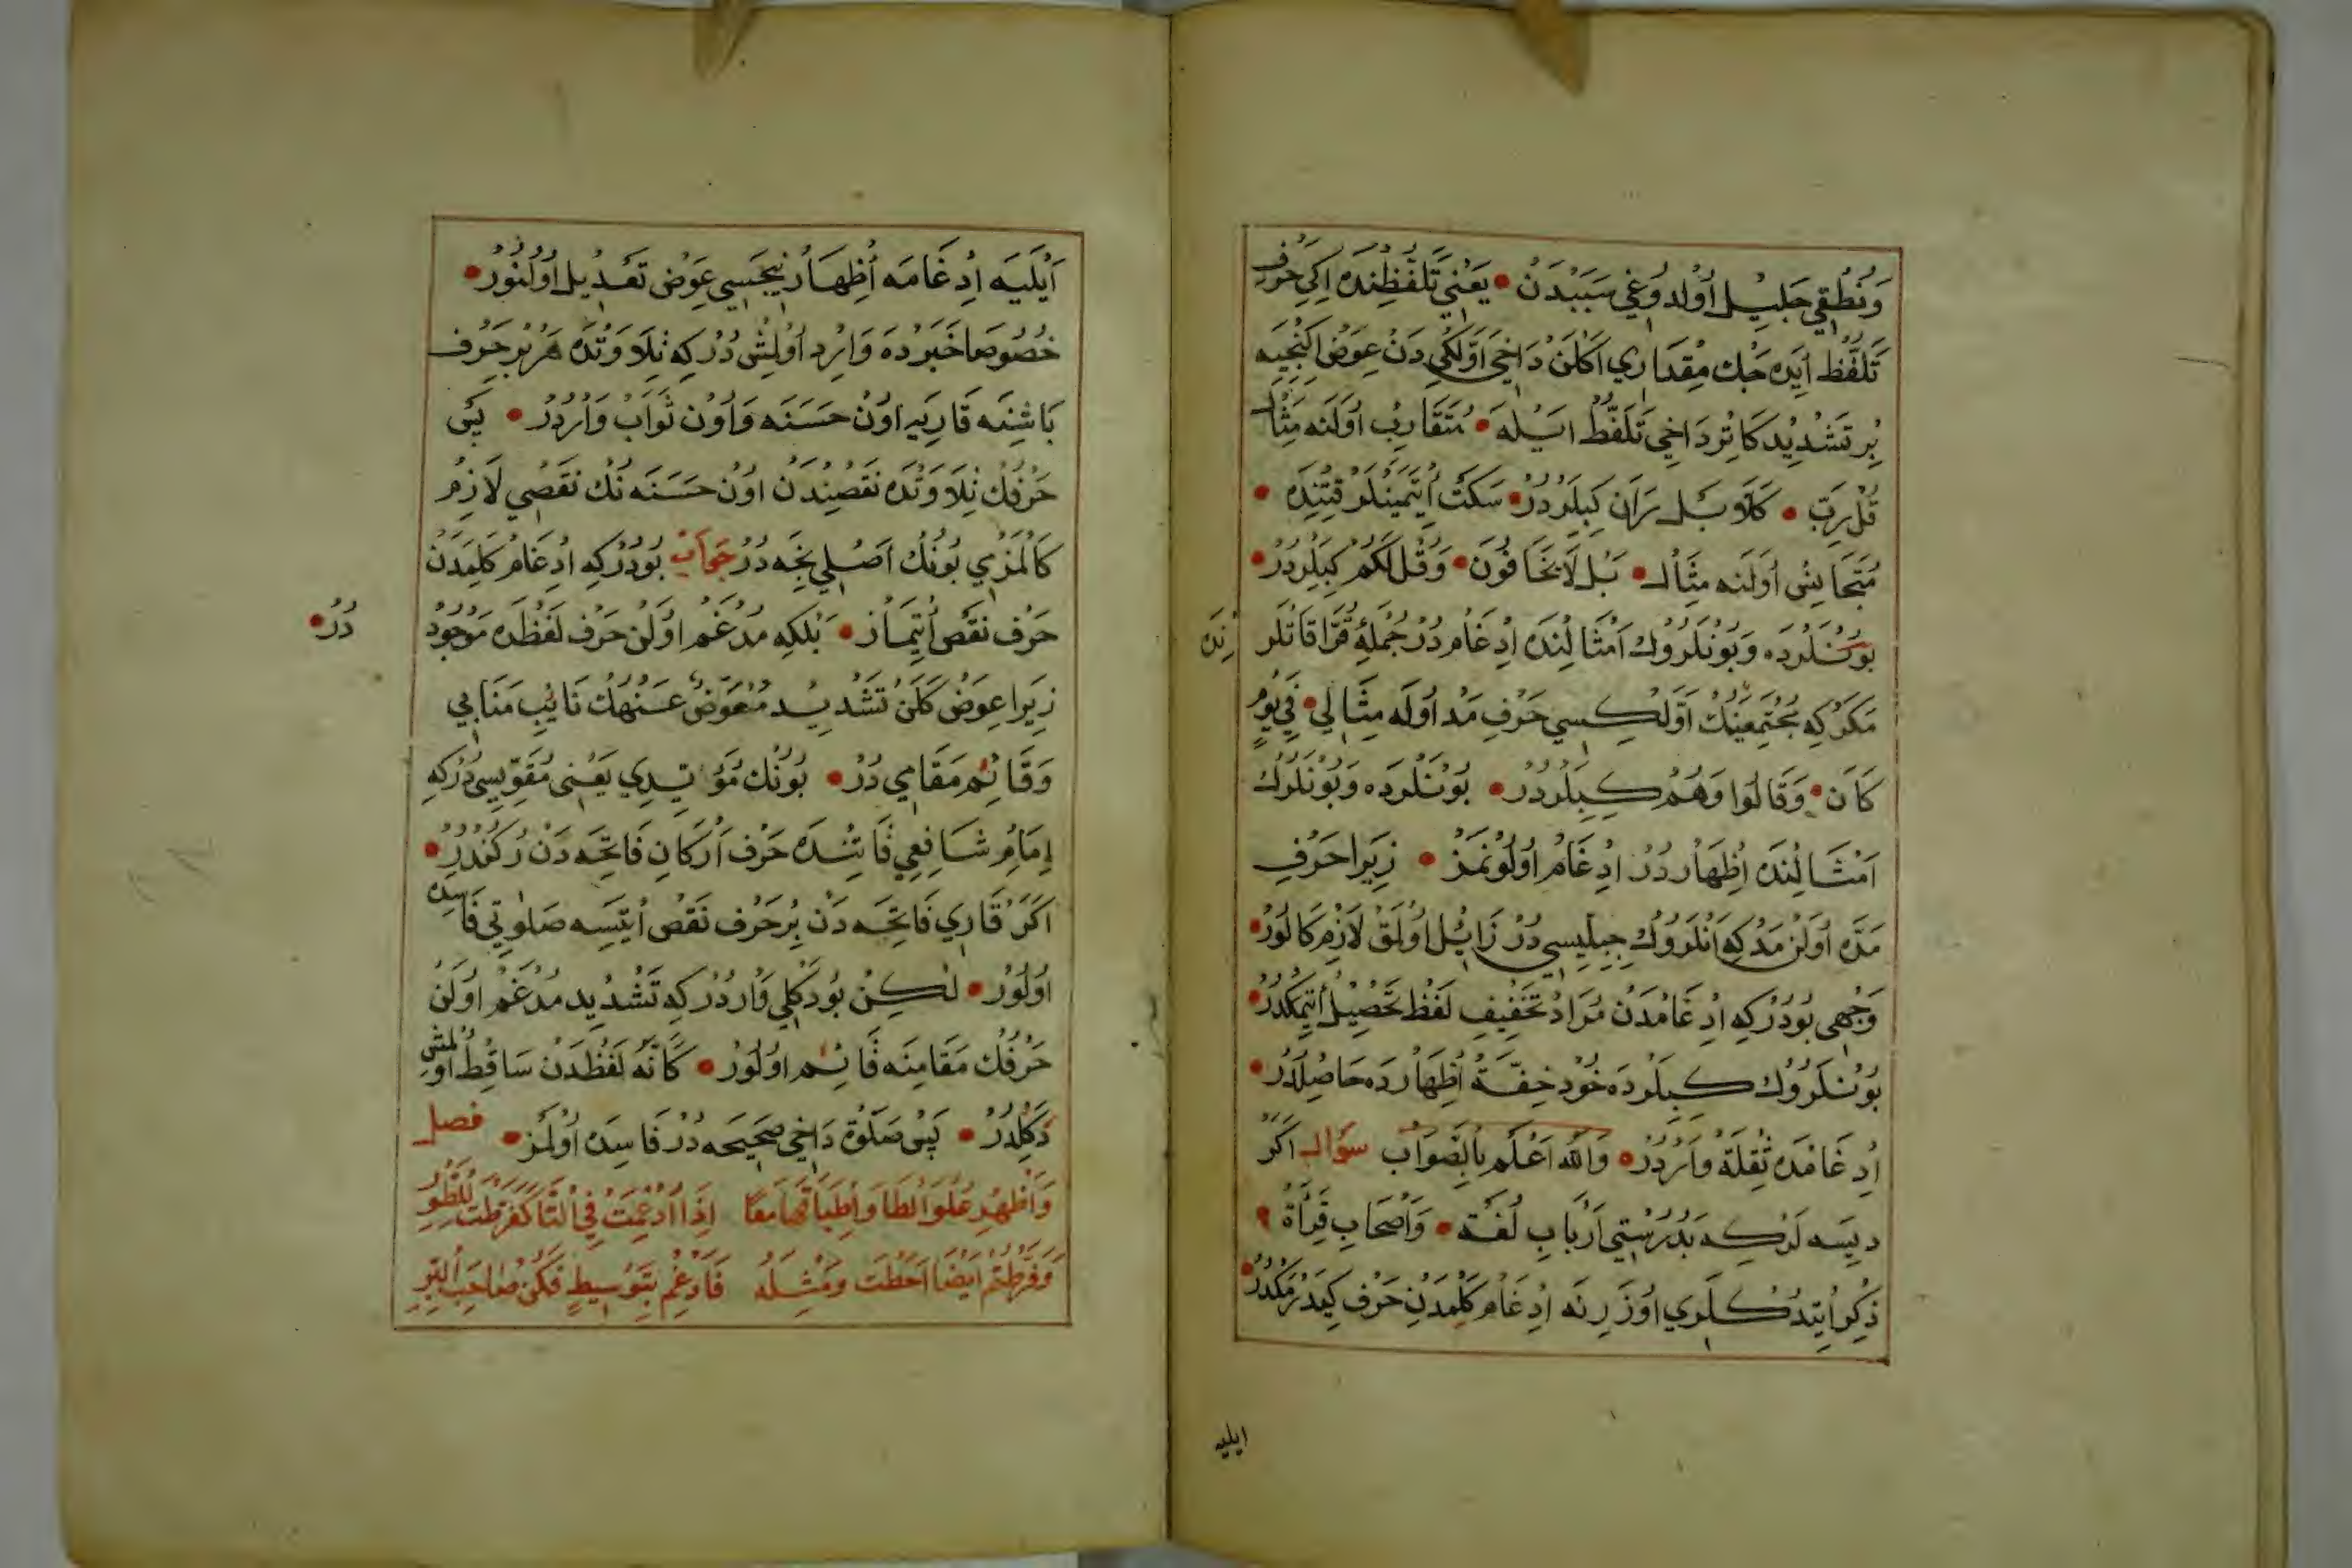 وَنُطْقِي جَلِيلْ اُولْدُوغِي سَبَبْدَنْ • يَعْنِي تَلَفُّظِنْدَه اِكِي حَرْفِ
تَلَفُّظ اَيْدَه جَكْ مِقْدَارِي اَكْلَنْ دَاخِي اَوَّلْكِي دَنْ عِوَضْ اِكِنْجِيَه
بِرْ تَشْدِيدْ كَاتُرْ دَاخِي تَلَفُّظْ اَيْلَه • مُتَقَارِبْ اُولَنَه مِثَالْ
قُلْ رَبِّ • كَلَّا بَلْ رَانَ كِبِيلَرْدُرْ • سَكْتْ اِتْمَيَنْلَرْ قَتِنْدَه •
مُتَجَانِسْ اُولَنَه مِثَالْ • بَلْ لَا يَخَافُونَ • وَقُلْ لَكُمْ كِبِيلَرْدُرْ •
بُونْلَرْدَه وَبُونْلَرُوكْ اَمْثَالِنْدَه اِدْغَامْ دُرْ جُمْلَهِٔ قُرَّا قَاتْلَرِ
نِنَدَه
مَكَرْ كِه مُجْتَمِعَيْنِكْ اَوَّلْكِيسِي حَرْفِ مَدْ اُولَه مِثَالِي • فِي يَوْمٍ
كَانَ • وَقَالُوا وَهُمْ كِبِيلَرْدُرْ • بُونْلَرْدَه وَبُونْلَرُوكْ
اَمْثَالِنْدَه اِظْهَارْ دُرْ اِدْغَامْ اُولُونْمَزْ • زِيرَا حَرْفِ
مَدَّه اُولَنْ مَدْ كِه اَنْلَرُوكْ جِبِلِّيسِي دُرْ زَائِلْ اُولْمَقْ لَازِمْ كَالُورْ •
وَجْهِي بُودُرْ كِه اِدْغَامْدَنْ مُرَادْ تَخْفِيفِ لَفْظْ تَحْصِيلْ اِتْمَكْدُرْ •
بُونْلَرُوكْ كِبِيلَرْدَه خُودْ خِفَّتْ اِظْهَارْدَه حَاصِلْدُرْ •
اِدْغَامْدَه ثِقْلَةْ وَارْدُرْ • وَاللّٰه اَعْلَمْ بِالصَّوَابْ سُؤَالْ اَكَرْ
دِيسَه لَرْ كِه بَدُرُسْتِي اَرْبَابِ لُغَتْ • وَاَصْحَابِ قِرَأَةْ •
ذِكْرْ اِيتْدُكْلَرِي اُوزَرِنَه اِدْغَامْ كَلِمَدَنْ حَرْفْ كِيدَرْمَكْدُرْ •
ايليه
اَيْلَيَه اِدْغَامَه اِظْهَارْ نِيجَسِي عِوَضْ تَعْدِيلْ اُولُنُورْ •
خُصُوصَا خَبَرْدَه وَارِدْ اُولْمِشْ دُرْ كِه تِلَاوَتْدَه هَرْ بِرْ حَرْف
بَاشِنَه قَارِيَه اوُنْ حَسَنَه وَاوُنْ ثَوَابْ وَارْدُرْ • پَسْ
حَرْفِكْ تِلَاوَتْدَه نَقْصِنْدَنْ اوُنْ حَسَنَه نَكْ نَقْصِي لَازِمْ
كَالْمَزْمِي بُونُكْ اَصْلِي نِجَه دُرْ جَوَابْ بُودُرْ كِه اِدْغَامْ كَلِمَدَنْ
حَرْف نَقْصْ اِتْمَازْ • بَلْكِه مُدْغَمْ اُولَنْ حَرْف لَفْظَدَه مَوْجُودْ
دُرْ •
زِيرَا عِوَضْ كَلَنْ تَشْدِيدْ مُعَوَّضٌ عَنْهُكْ نَايِبِ مَنَابِي
وَقَائِمْ مَقَامِي دُرْ • بُونُكْ مُؤَيِّدِي يَعْنِي مُقَوِّيسِي دُرْ كِه
اِمَامِ شَافِعِي قَاتِنْدَه حَرْف اَرْكَانِ فَاتِحَه دَنْ رُكُنْدُرْ •
اَكَرْ قَارِي فَاتِحَه دَنْ بِرْ حَرْف نَقْصْ اِيتْسَه صَلوٰتِي فَاسِدَه
اوُلُورْ • لٰكِنْ بُودَكْلِي وَارْدُرْ كِه تَشْدِيد مُدْغَمْ اوُلَنْ
حَرْفُكْ مَقَامِنَه قَائِمْ اوُلُورْ • كَاَنَّهُ لَفْظَدَنْ سَاقِطْ اوُلْمِشْ
دَكِلْدُرْ • پَسْ صَلٰوةْ دَاخِي صَحِيحَه دُرْ فَاسِدَه اُولْمَزْ • فصل
وَاَظْهِرْ عُلُوَّ الطَّا وَاِطْبَاقَهَا مَعًا اِذَا اُدْغِمَتْ فِي التَّا كَفَرَّطْتُ
وَفَرَّطْتُمْ اَيْضًا اَحَطْتُ وَمِثْلَهُ فَادْغِمْ بِتَوْسِيطٍ فَكُنْ صَاحِبَ